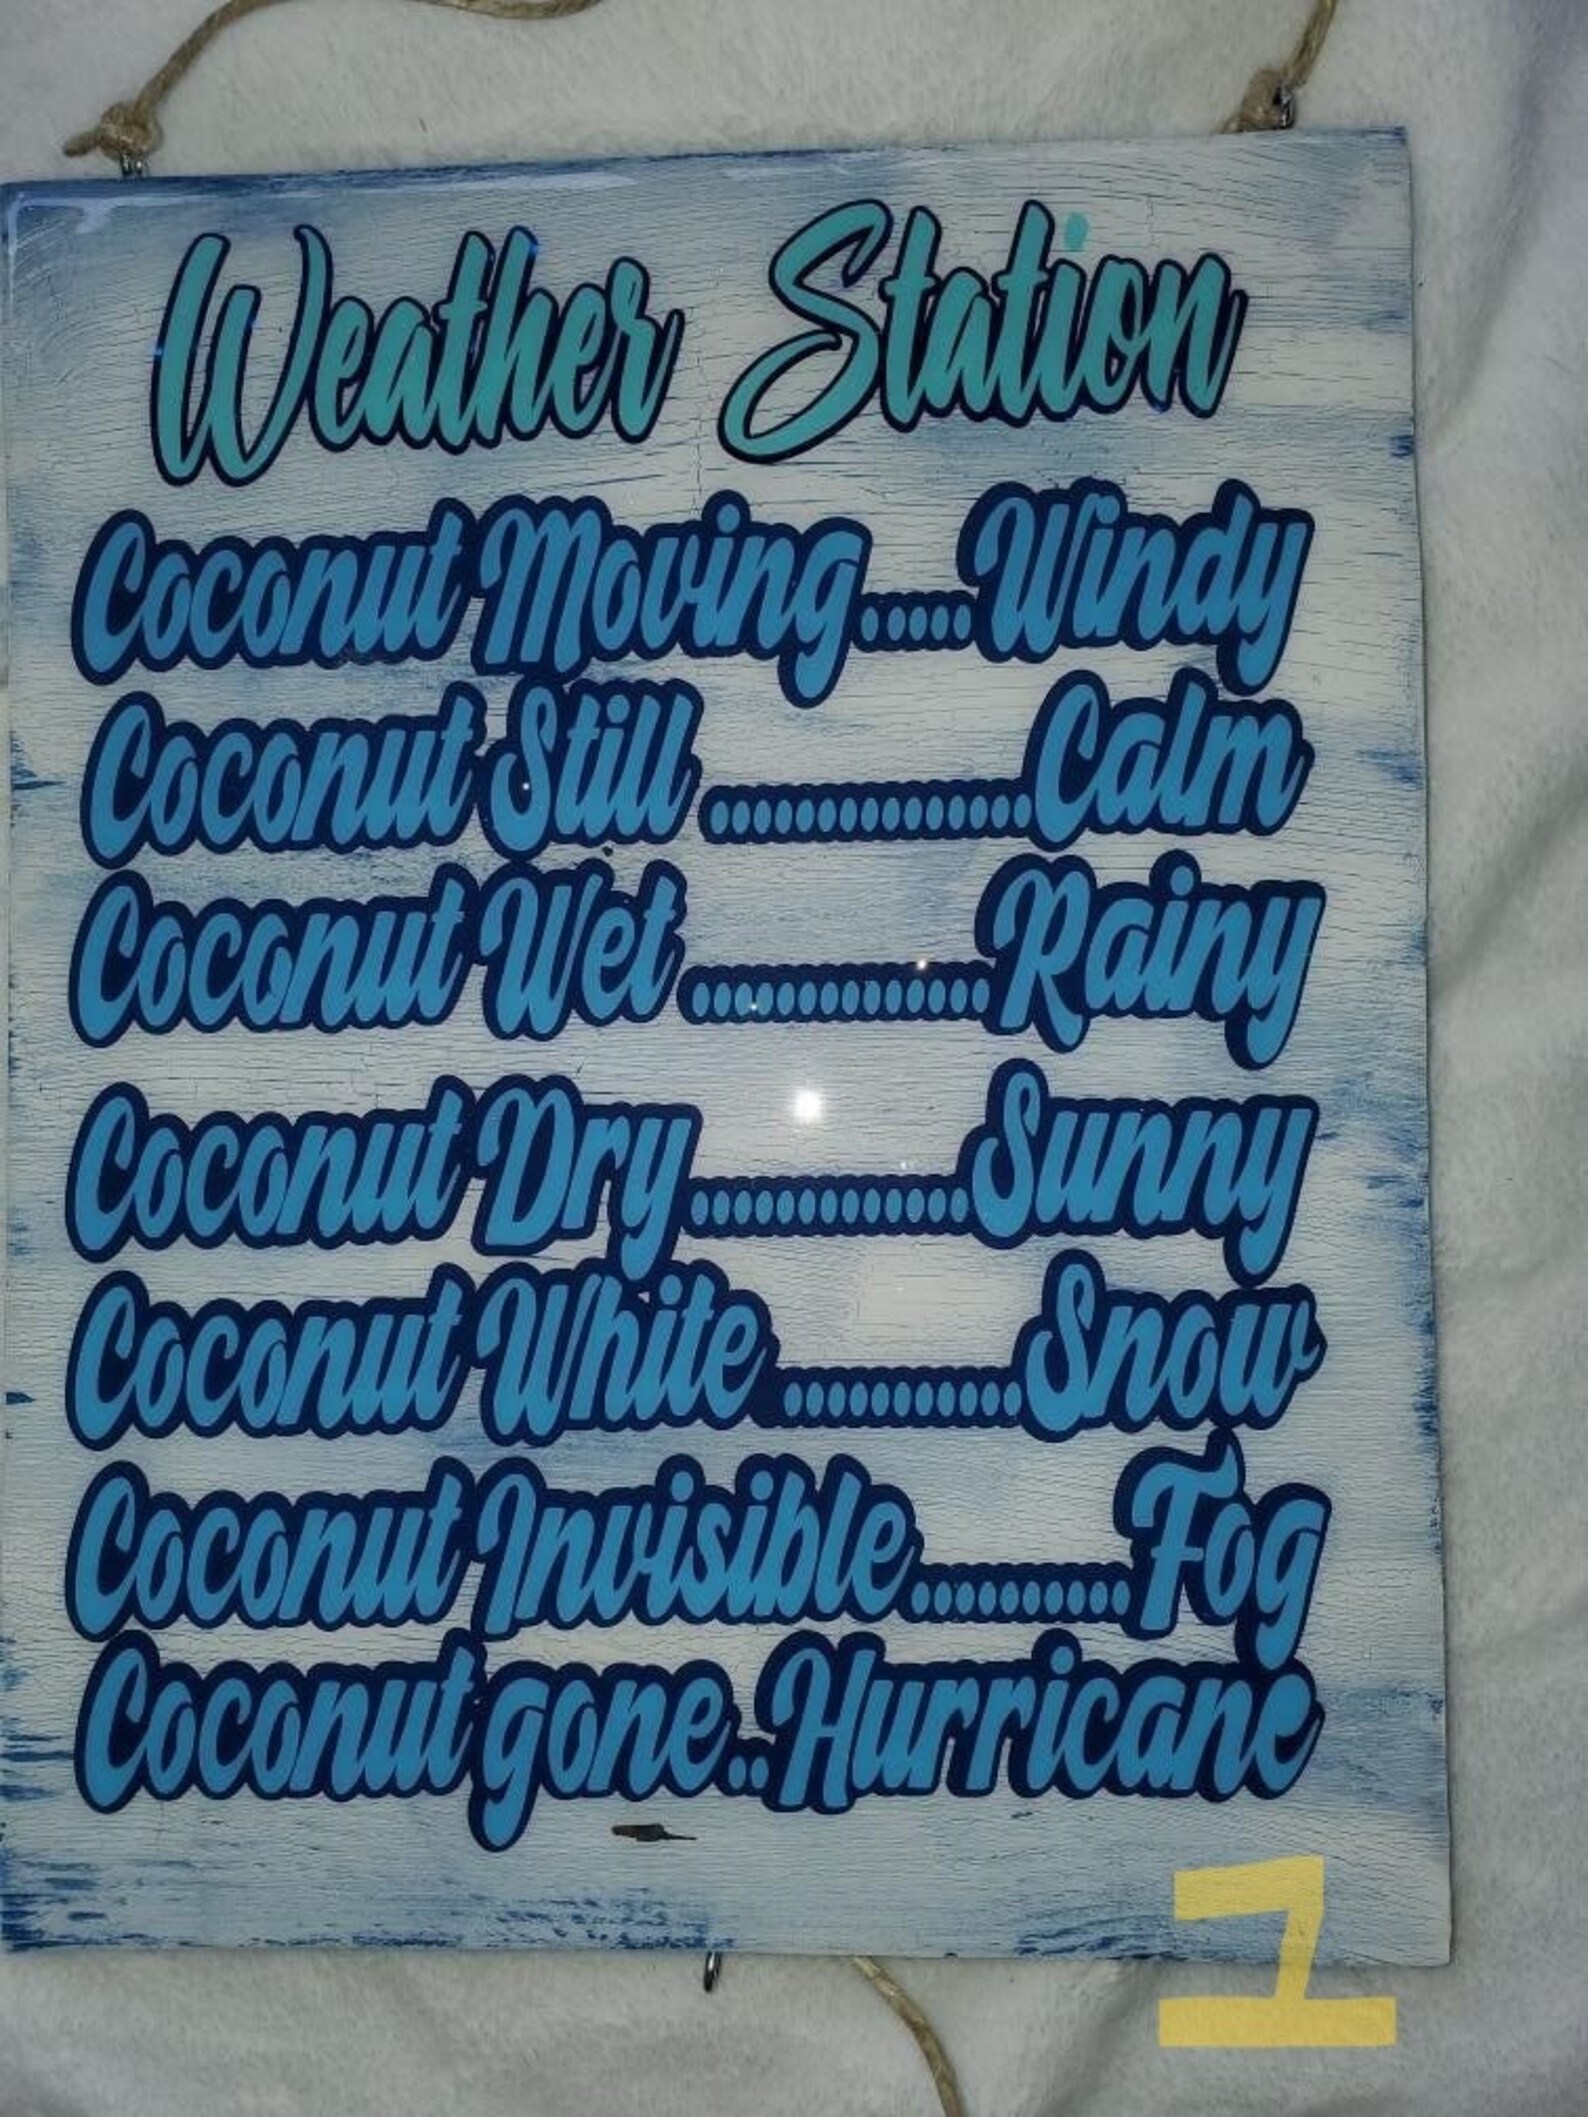 Weather Station
Coconut Moving.....Windy
Coconut Still ...............Calm
Coconut Wet ..............Rainy
Coconut Dry.............Sunny
Coconut White ...........Snow
Coconut Invisible..........Fog
Coconut gone..Hurricane
1